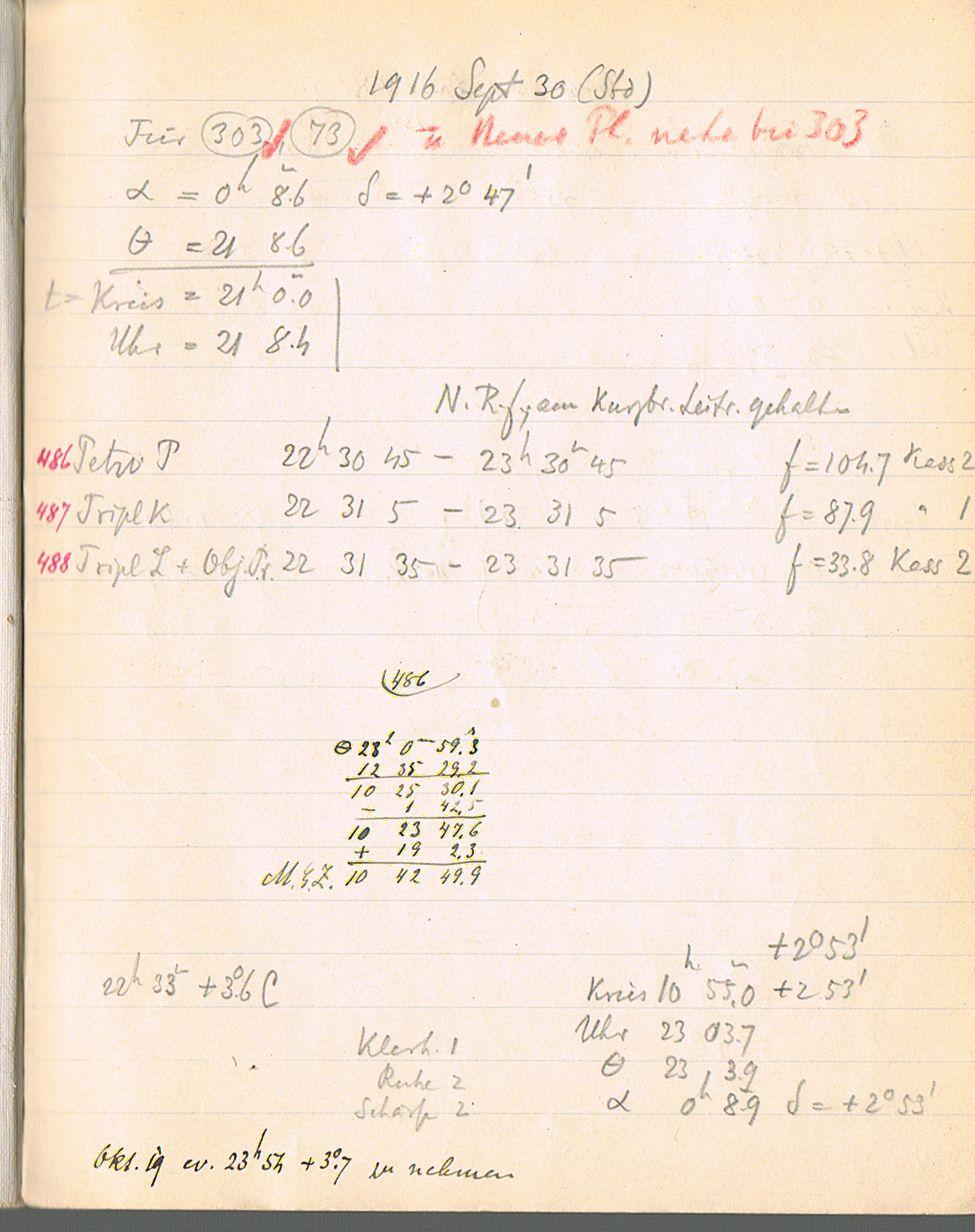 1916 Sept 30 (Std)
Für 303, 73 = Neuer Pl. nahe bei 303
α = 0h 8.6m δ = +2° 47'
θ = 21 8.6
t = Kreis = 21h 0.0m
Uhr = 21 8.4
N. Rf, am Leitr. gehalten
486 Petzv P 22h 30 45 – 23h 30m 45 f = 104.7 Kass 2
487 Tripl K 22 31 5 – 23 31 5 f = 87.9 " 1
488 Tripl L + Obj. Pr. 22 31 35 – 23 31 35 f = 33.8 Kass 2
486
θ 23h 0m 59.3s
12 35 29.2
10 25 30.1
– 1 42.5
10 23 47.6
+ 19 2.3
M.Z. 10 42 49.9
+2° 53'
22h 33m +3.6° C
Kreis 10h 55.0m +2 53'
Uhr 23 03.7
Klarh. 1
θ 23 3.9
Ruhe 2
α 0h 8.9 δ = +2° 53'
Schärfe 2
Okt. 19 ev. 23h 54 +3.°7 zu nehmen